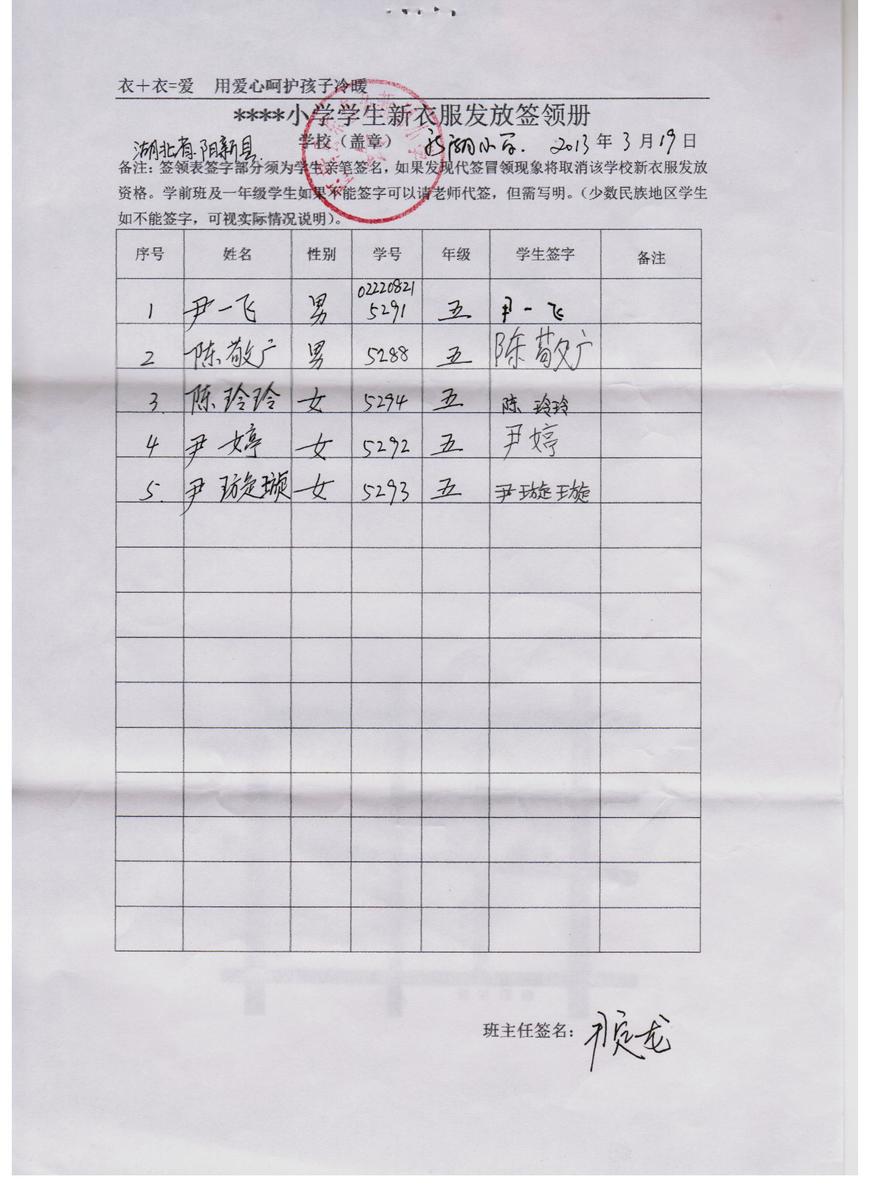 衣+衣=爱 用爱心呵护孩子冷暖
****小学学生新衣服发放签领册
湖北省.阳新县. 学校（盖章） 小学. 2013年3月19日
备注：签领表签字部分须为学生亲笔签名，如果发现代签冒领现象将取消该学校新衣服发放
资格。学前班及一年级学生如果不能签字可以请老师代签，但需写明。（少数民族地区学生
如不能签字，可视实际情况说明）。
序号 姓名 性别 学号 年级 学生签字 备注
02220821
1 尹一飞 男 5291 五 尹一飞
2 陈敬广 男 5288 五 陈敬广
3. 陈玲玲 女 5294 五 陈玲玲
4 尹婷 女 5292 五 尹婷
5. 尹璇璇 女 5293 五 尹璇璇
班主任签名：